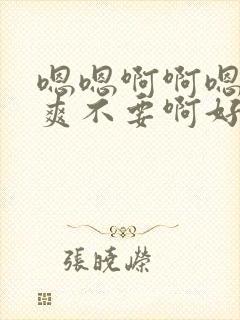 嗯嗯啊啊嗯
爽不要啊好
張曉嶸